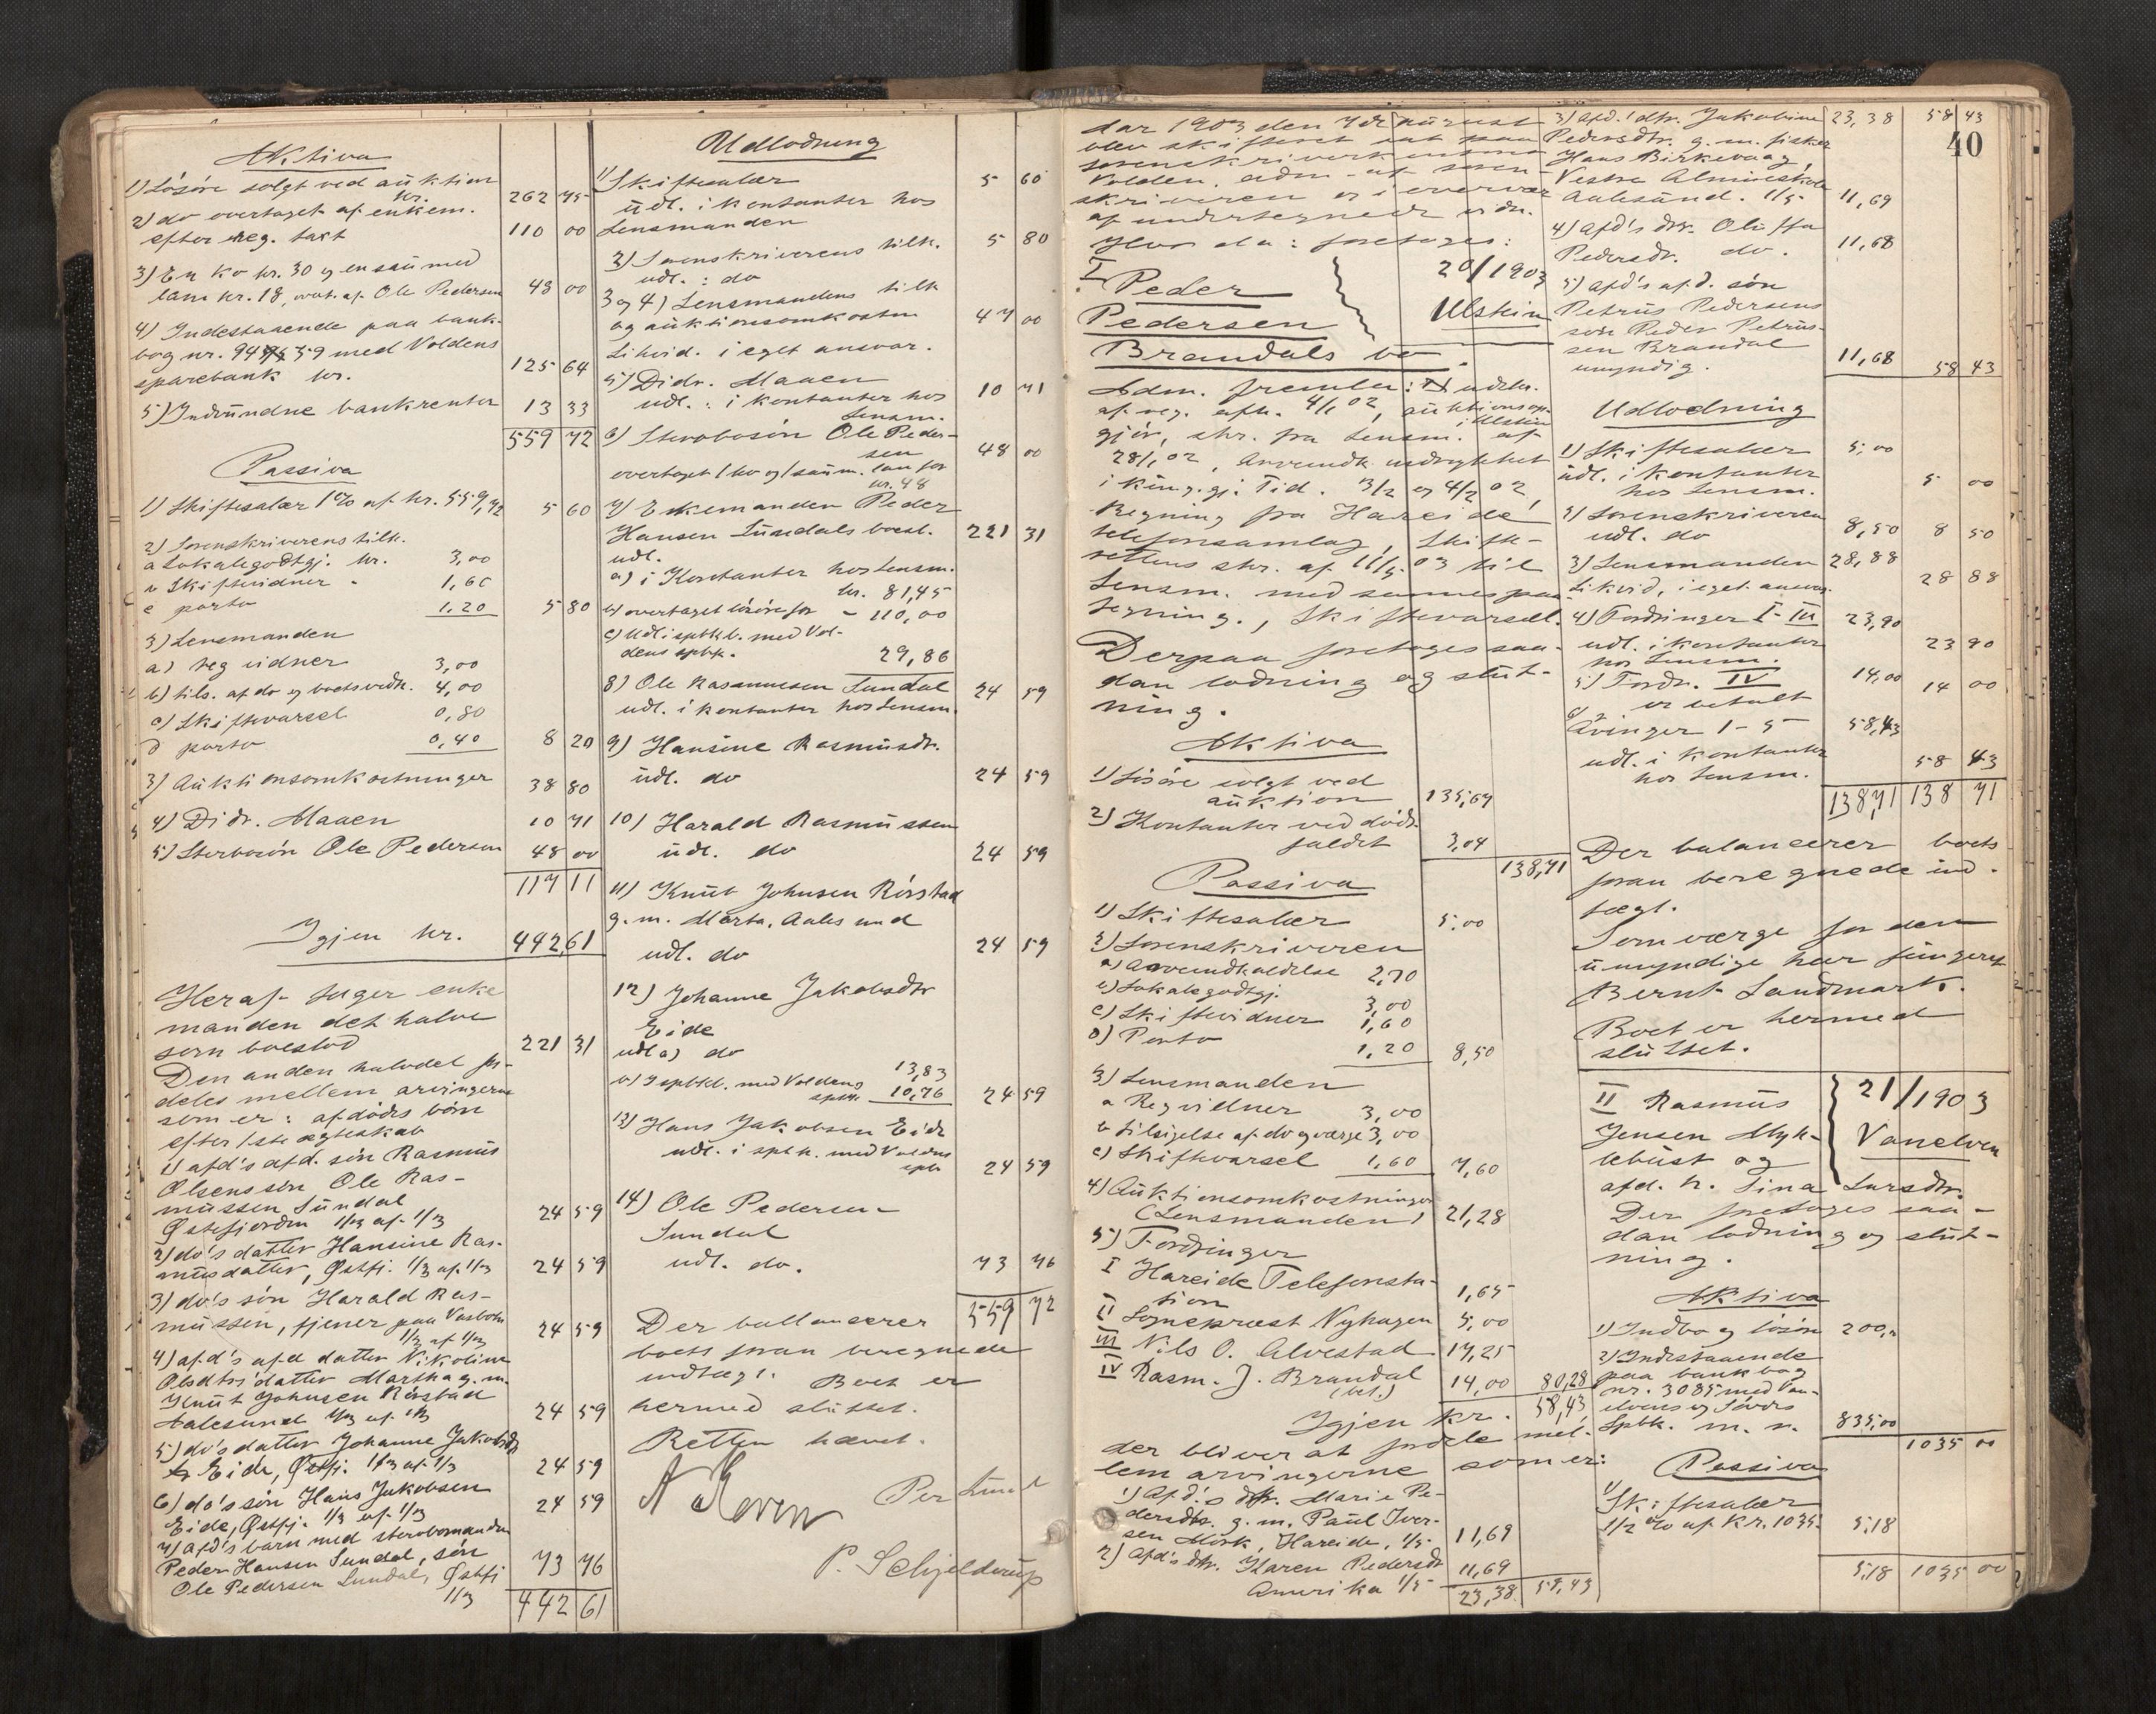 Aktiva
1) Lösöre solgt ved auktion
kr. 262 75
2) do overtaget af enkem.
efter reg. takt 110 00
3) En ko kr. 30 og en sau med
lam kr. 18, overt. af Ole Pedersen 48 00
4) Indestaaende paa bank-
bog nr. 9459 med Voldens
sparebank kr. 125 64
5) Indvundne bankrenter 13 33
559 72
Passiva
1) Skiftesalær 1% af kr. 559,72 5 60
2) Sorenskriverens tilk.
a Lokalegodtgj. kr. 3,00
b Skiftevidner - 1,60
c porto 1,20 5 80
3) Lensmanden
a) reg vidner 3,00
b) tils. af do og boetsvedk. 4,00
c) Skiftevarsel 0,80
d porto 0,40 8 20
3) Auktionsomkostninger 38 80
4) Didr. Maaen 10 71
5) Sterbosön Ole Pedersen 48 00
117 11
Igjen kr. 442,61
Heraf tager enke
manden det halve
som boeslod 221 31
Den anden halvdel for-
deles mellem arvingerne
som er: afdödes börn
efter 1ste ægteskab
1) afd's afd. sön Rasmus
Olsens sön Ole Ras-
mussen Sundal
Østefjorden 1/3 af 1/3 24 59
2) do's datter Hansine Ras-
musdatter, Østfj. 1/3 af 1/3 24 59
3) do's sön Harald Ras-
mussen, tjener paa Vasbotn
1/3 af 1/3 24 59
4) afd's afd datter Nikoline
Olsdtrs datter Martha g.m.
Knut Johnsen Rörstad
Aalesund 1/3 af 1/3 24 59
5) do's datter Johanne Jakobsdtr
Eide, Østfj. 1/3 af 1/3 24 59
6) do's sön Hans Jakobsen
Eide, Østfj. 1/3 af 1/3 24 59
7) afd's barn med sterbomanden
Peder Hansen Sundal, sön
Ole Pedersen Sundal, Østfj
1/3 73 76
442 61
Udlodning
1) Skiftesalær 5 60
udl. i kontanter hos
Lensmanden
2) Sorenskriverens tilk. 5 80
udl. : do
3 og 4) Lensmandens tilk
og auktionsomkostn 47 00
Likvid. i eget ansvar.
5) Didr. Maaen 10 71
udl. : i kontanter hos
Lensm.
6) Sterbosön Ole Peder-
sen 48 00
overtaget 1 ko og 1 sau m. lam for
kr. 48
7) Enkemanden Peder
Hansen Sundals boesl. 221 31
udl.
a) i Kontanter hos Lensm.
kr. 81,45
b) overtaget lösöre for - 110,00
c) Udl i spbkb. med Vol-
dens spbk. 29,86
8) Ole Rasmussen Sundal 24 59
udl. i kontanter hos Lensm.
9) Hansine Rasmusdtr.
udl. do 24 59
10) Harald Rasmussen
udl. do 24 59
11) Knut Johnsen Rörstad
g.m. Marta, Aalesund
udl. do 24 59
12) Johanne Jakobsdtr
Eide
udl a) do 13,83
b) I spbkb. med Voldens
spbk 10,76 24 59
13) Hans Jakobsen Eide
udl. i spbk. med Voldens
spbk 24 59
14) Ole Pedersen
Sundal
udl. do. 73 76
559 72
Der ballancerer
boets foran beregnede
indtægt. Boet er
hermed sluttet.
Retten hævet.
Per
P. Schjelderup
40
Aar 1903 den 7de august
blev skifteret sat paa
sorenskriverkontoret
Volden, adm. af soren-
skriveren og i overvær
af undertegnede vidn.
Hvor da: foretoges:
I
Peder
Pedersen
Brandals bo.
20/1903
Ulstein
Adm. fremla: udskr.
af reg. afh. 4/1 02, auktionsop-
gjör, skr. fra Lensm. i Ulstein af
28/1 02, Anvendt indrykket
i king.gj. Tid. 3/2 og 4/2 02,
Regning fra Hareide
telefonsamlag, Skifte-
rettens skr. af 11/5 03 til
Lensm. med sammes paa-
tegning., Skiftevarsel.
Derpaa foretoges saa-
dan lodning og slut-
ning.
Aktiva
1) Lösöre solgt ved
auktion 135,67
2) Kontanter ved döds-
faldet 3,04
138,71
Passiva
1) Skiftesalær 5,00
2) Sorenskriveren
a) Anvendtkaldelse 2,70
b) Lokalegodtgj. 3,00
c) Skiftevidner 1,60
d) Porto 1,20 8,50
3) Lensmanden
a Regvidner 3,00
b tilsigelse af do og værge 3,00
c) Skiftevarsel 1,60 7,60
4) Auktionsomkostninger
(Lensmanden) 21,28
5) Fordringer
I Hareide Telefonsta-
tion 1,65
II Sognepræst Nyhagen 5,00
III Nils O. Alvestad 17,25
IV Rasm. J. Brandal
(bet.) 14,00 80,28
Igjen kr. 58,43
der bliver at fordele mel-
lem arvingerne som er:
1) Afd.'s dtr. Marie Pe-
dersdtr. g.m. Paul Iver-
sen Mork, Hareide, 1/5 11,69
2) Afd's dtr. Karen Pedersdtr
Amerika 1/5 11,69
23,38 58,43
3) Afd.'s dtr. Jakobine 23,38 58 43
Pedersdtr. g.m. fisker
Hans Birkevaag,
Vestre Almueskole
Aalesund. 1/5 11,69
4) Afd's dtr. Oluffa
Pedersdtr. do. 11,68
5) Afd's afd. sön
Petrus Pedersens
sön Peder Petrus-
sen Brandal
umyndig. 11,68 58 43
Udlodning
1) Skiftesalær 5,00
udl. i kontanter
hos Lensm. 5 00
2) Sorenskriveren 8,50
udl. do 8 50
3) Lensmanden 28,88
Likvid, i eget ansvar 28 88
4) Fordringer I-III 23,90
udl. i kontanter
hos Lensm. 23 90
5) Fordr. IV 14,00
er betalt 14 00
6) Arvinger 1-5 58,43
udl. i kontanter
hos Lensm. 58 43
138,71 138 71
Der balancerer boets
foran beregnede ind-
tægt.
Som værge for den
umyndige har fungeret
Bernt Landmark.
Boet er hermed
sluttet.
II Rasmus
Jensen Myk-
lebust og
afd. h. Sina Larsdtr.
21/1903
Vanelven
Der foretoges saa-
dan lodning og slut-
ning.
Aktiva
1) Indbo og lösöre 200,-
2) Indestaaende
paa bankbog
nr. 3085 med Van-
elvens og Sövdes
Spbk. m. r. 835,00
1035 00
Passiva
1) Skiftesalær
1/2 % af Kr. 1035 5,18
5,18 1035 00